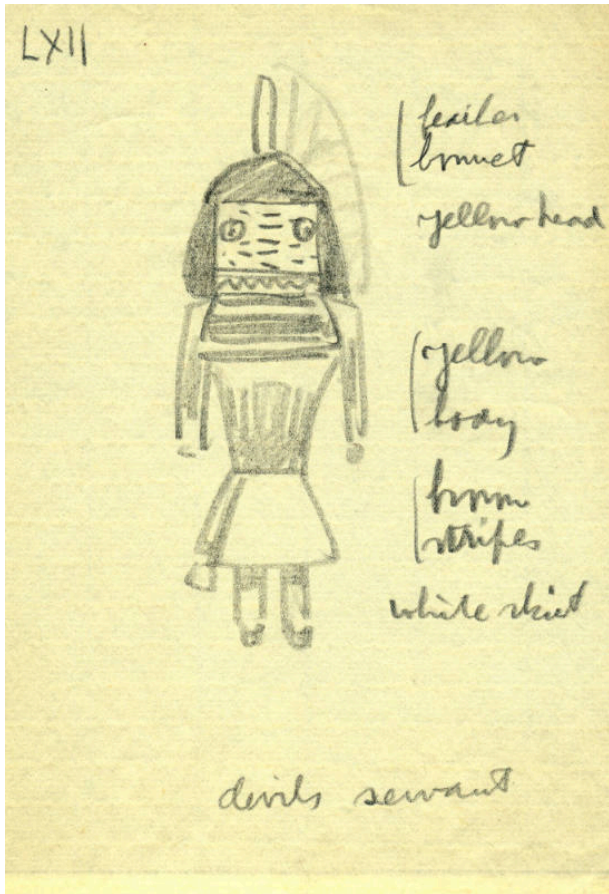 LXII
feather
bonnet
yellow head
yellow
body
brown
stripes
white skirt
devils servant